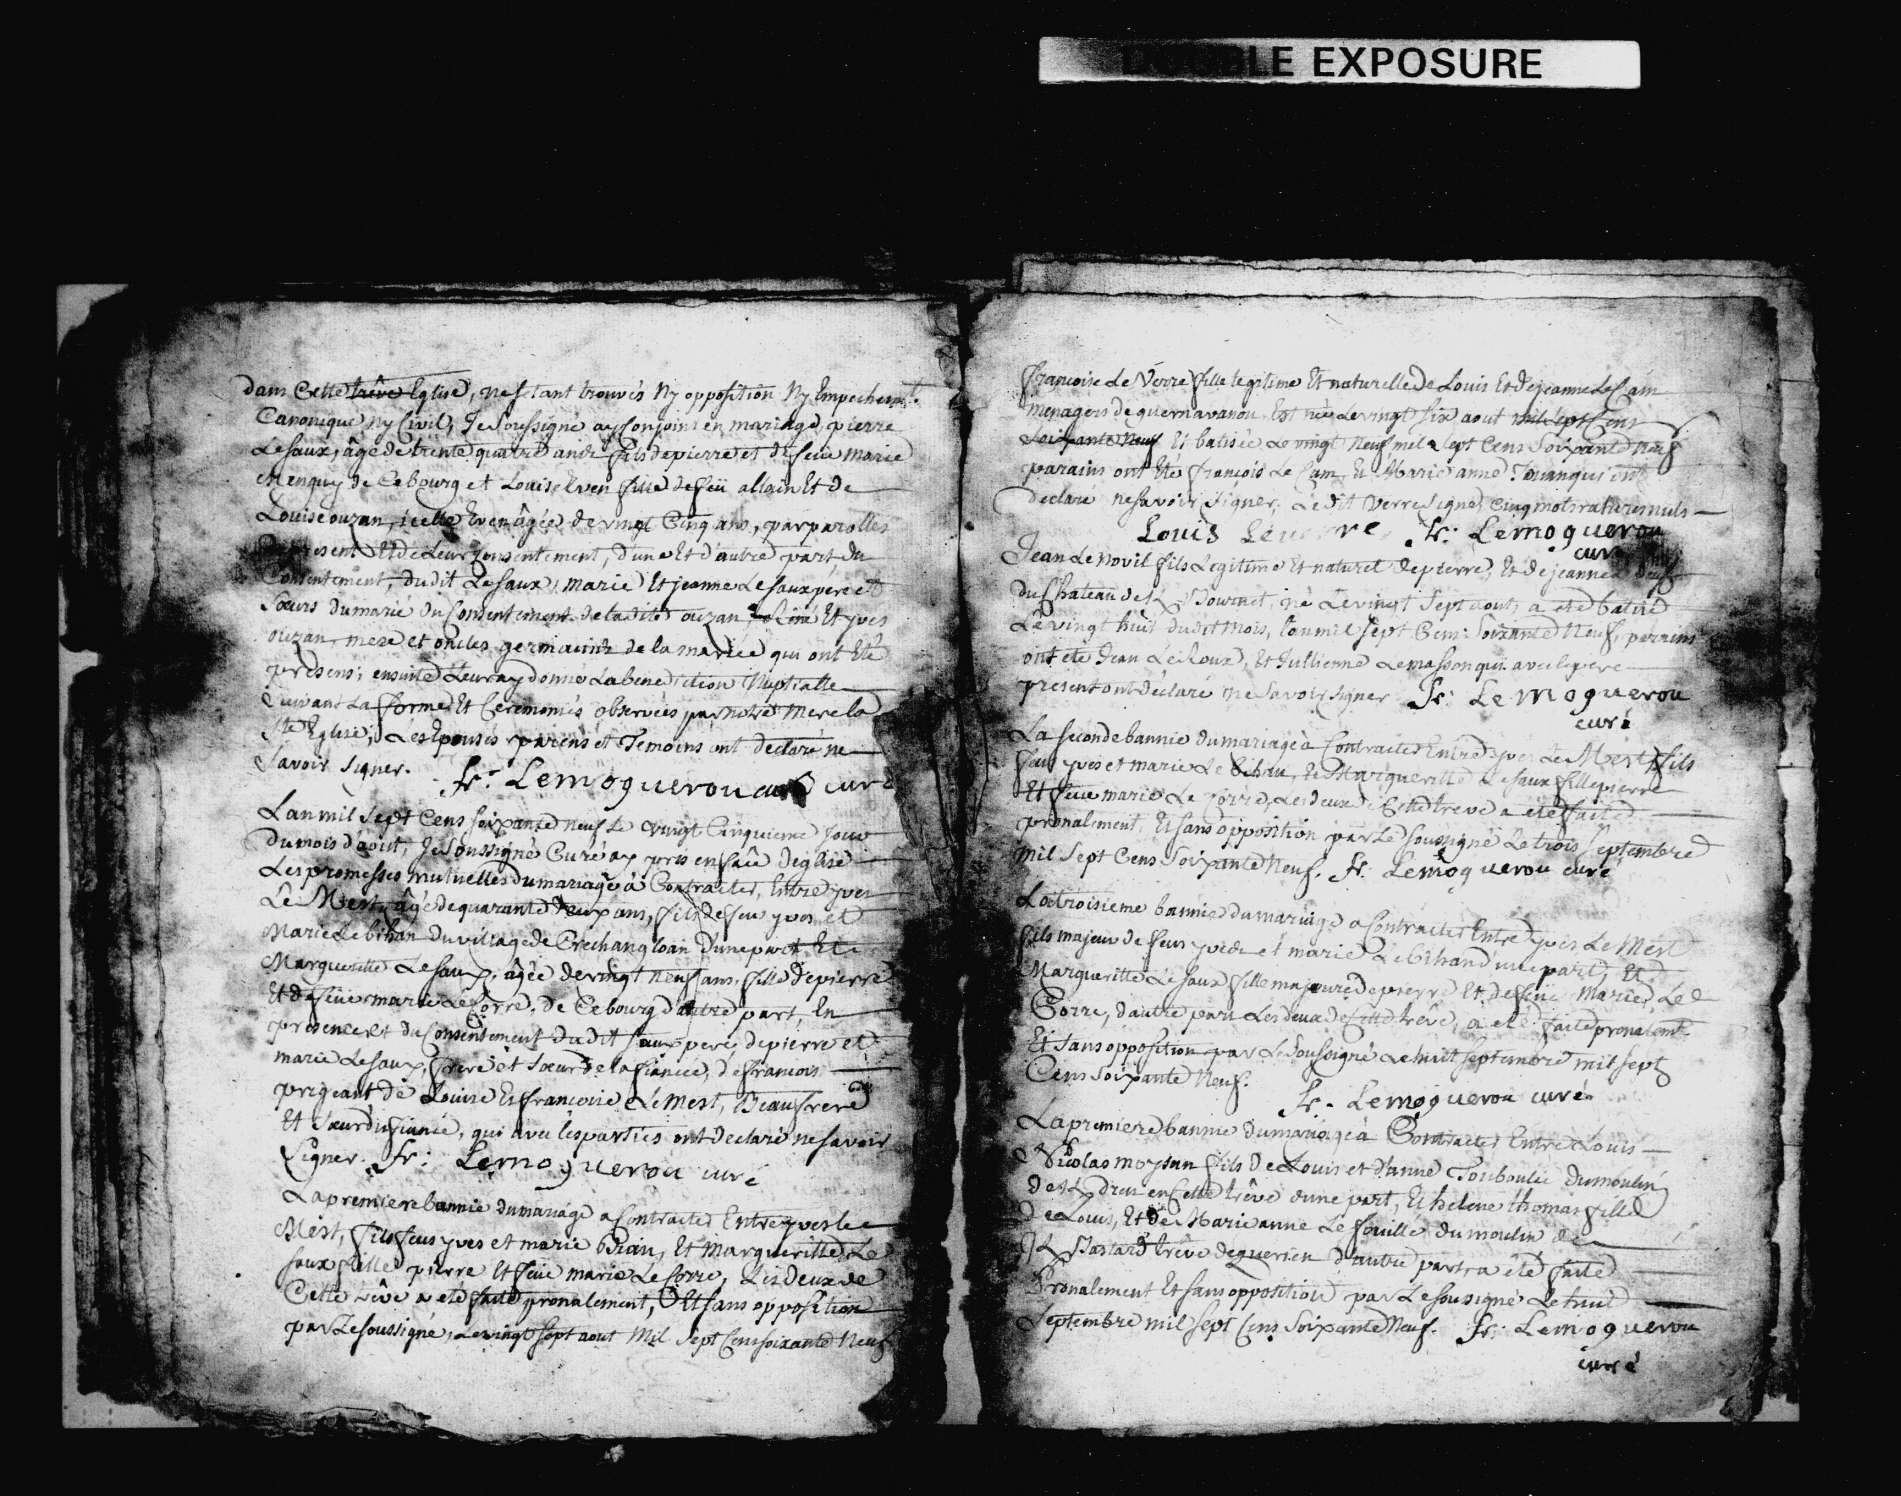 DOUBLE EXPOSURE
dans Cette trêve Eglise, ne s'etant trouvés Ny opposition Ny Empechemt.
Canonique ny Civil, Je Soussigné ay Conjoint en mariage, pierre
Le Saux, âgé de trente quatre ans fils de pierre et de feue marie
Menguy de Cebourg et Louise Even fille de feü allain Et de
Louise ouzan, icelle Even âgée de vingt Cinq ans, par parolles
de present Et de Leur Consentement, d'une Et d'autre part, du
Consentement, dudit Le Saux, marie Et jeanne Le Saux pere et
Sœurs du marié du Consentement de la dite ouzan, Et yves
ouzan mere et oncles germains de la mariée qui ont Eté
presens, ensuite Leur ay donné La benediction Nuptialle
Suivant La forme Et Ceremonies observées par Notre Mere la
Ste Eglise, Les Epousés parens et Temoins ont declaré ne
Savoir Signer. fr. Lemoguerou curé
L'an mil Sept Cens Soixante neuf Le vingt Cinquieme jour
du mois d'aout, Je Soussigné Curé ay pris en face d'eglise
Les promesses mutuelles du mariage à Contracter, Entre yves
Le Mest, âgé de quarante deux ans, fils de feu yves et
Marie Le bihan du village de d'une part Et
Margueritte Le Saux, âgée de vingt Neuf ans, fille de pierre
Et de feüe marie Le Corre, de Cebourg d'autre part, En
presence et du Consentement dudit Saux pere, de pierre et
marie Le Saux, frere et Sœur de la fiancée, de francois
prigeant de Louise Et francoise Le Mest, Beaufrere
Et Sœurs du fiancé, qui avec les parties ont declaré ne Savoir
Signer. fr. Lemoguerou curé
La premiere bannie du mariage a Contracter Entre yves Le
Mest, fils feus yves et marie Bian, Et Margueritte Le
Saux fille pierre Et feüe marie Le Corre, Les deux de
Cette trêve a eté faite pronalement, Et Sans opposition
par Le Soussigné, Le vingt Sept aout Mil Sept Cens Soixante Neuf
françoise Le Verre fille legitime Et naturelle de Louis Et de jeanne Le Cam
menagers de quernavanou, Est née Le vingt Six aout mil Sept Cens
Soixante Neuf Et batisée Le vingt Neuf mil Sept Cens Soixante Neuf
parains ont Eté françois Le Cam, Et Marie anne Touanguy ont
declaré ne Savoir Signer, Le dit Verre Signe, Cinq mots raturés nuls
Louis Le verre fr. Lemoguerou
curé
Jean Le Novil fils Legitime Et naturel de pierre, Et de jeanne
du Chateau de né Le vingt Sept aout, a eté batisé
Le vingt huit dudit Mois, L'an mil Sept Cens Soixante Neuf, parains
ont ete Jean Le Roux, Et Jullienne Le masson qui avec Le pere
present ont Déclaré ne Savoir Signer fr. Le Moguerou
curé
La Seconde bannie du mariage à Contracter Entre yves Le Mest fils
feu yves et marie Le bihan, Et Marguerite Le Saux fille pierre
Et feüe marie Le Corre, Les deux de Cette treve a eté faite
pronalement, Et Sans opposition par Le Soussigné Le trois Septembre
Mil Sept Cens Soixante Neuf. fr. Lemoguerou curé
La troisieme bannie du mariage a Contracter Entre yves Le Mest
fils majeur de feus yves et marie Le bihan d'une part, Et
Marguerittte Le Saux fille majeure de pierre Et de feüe Marie Le
Corre, d'autre part Les deux de Cette trêve, a eté faite pronalemt.
Et Sans opposition par Le Soussigné Le huit Septembre mil Sept
Cens Soixante Neuf.
fr. Lemoguerou curé
La premiere bannie du mariage à Contracter Entre Louis
Nicolas moysan fils de Louis et d'anne Touboulic du moulin
de en Cette trêve d'une part, Et helene thomas fille
de Louis, Et de Marie anne Le fouille du moulin de
trêve de querien d'autre part, a eté faite
Pronalement Et Sans opposition par Le Soussigné Le huit
Septembre mil Sept Cens Soixante Neuf. fr. Lemoguerou
curé